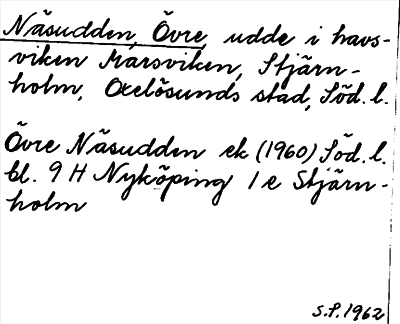 Näsudden, Övre, udde i havs-
viken Marsviken, Stjärn-
holm, Oxelösunds stad, Söd. l.
Övre Näsudden ek (1960) Söd. l.
bl. 9 H Nyköping 1 e Stjärn-
holm
S.P. 1962